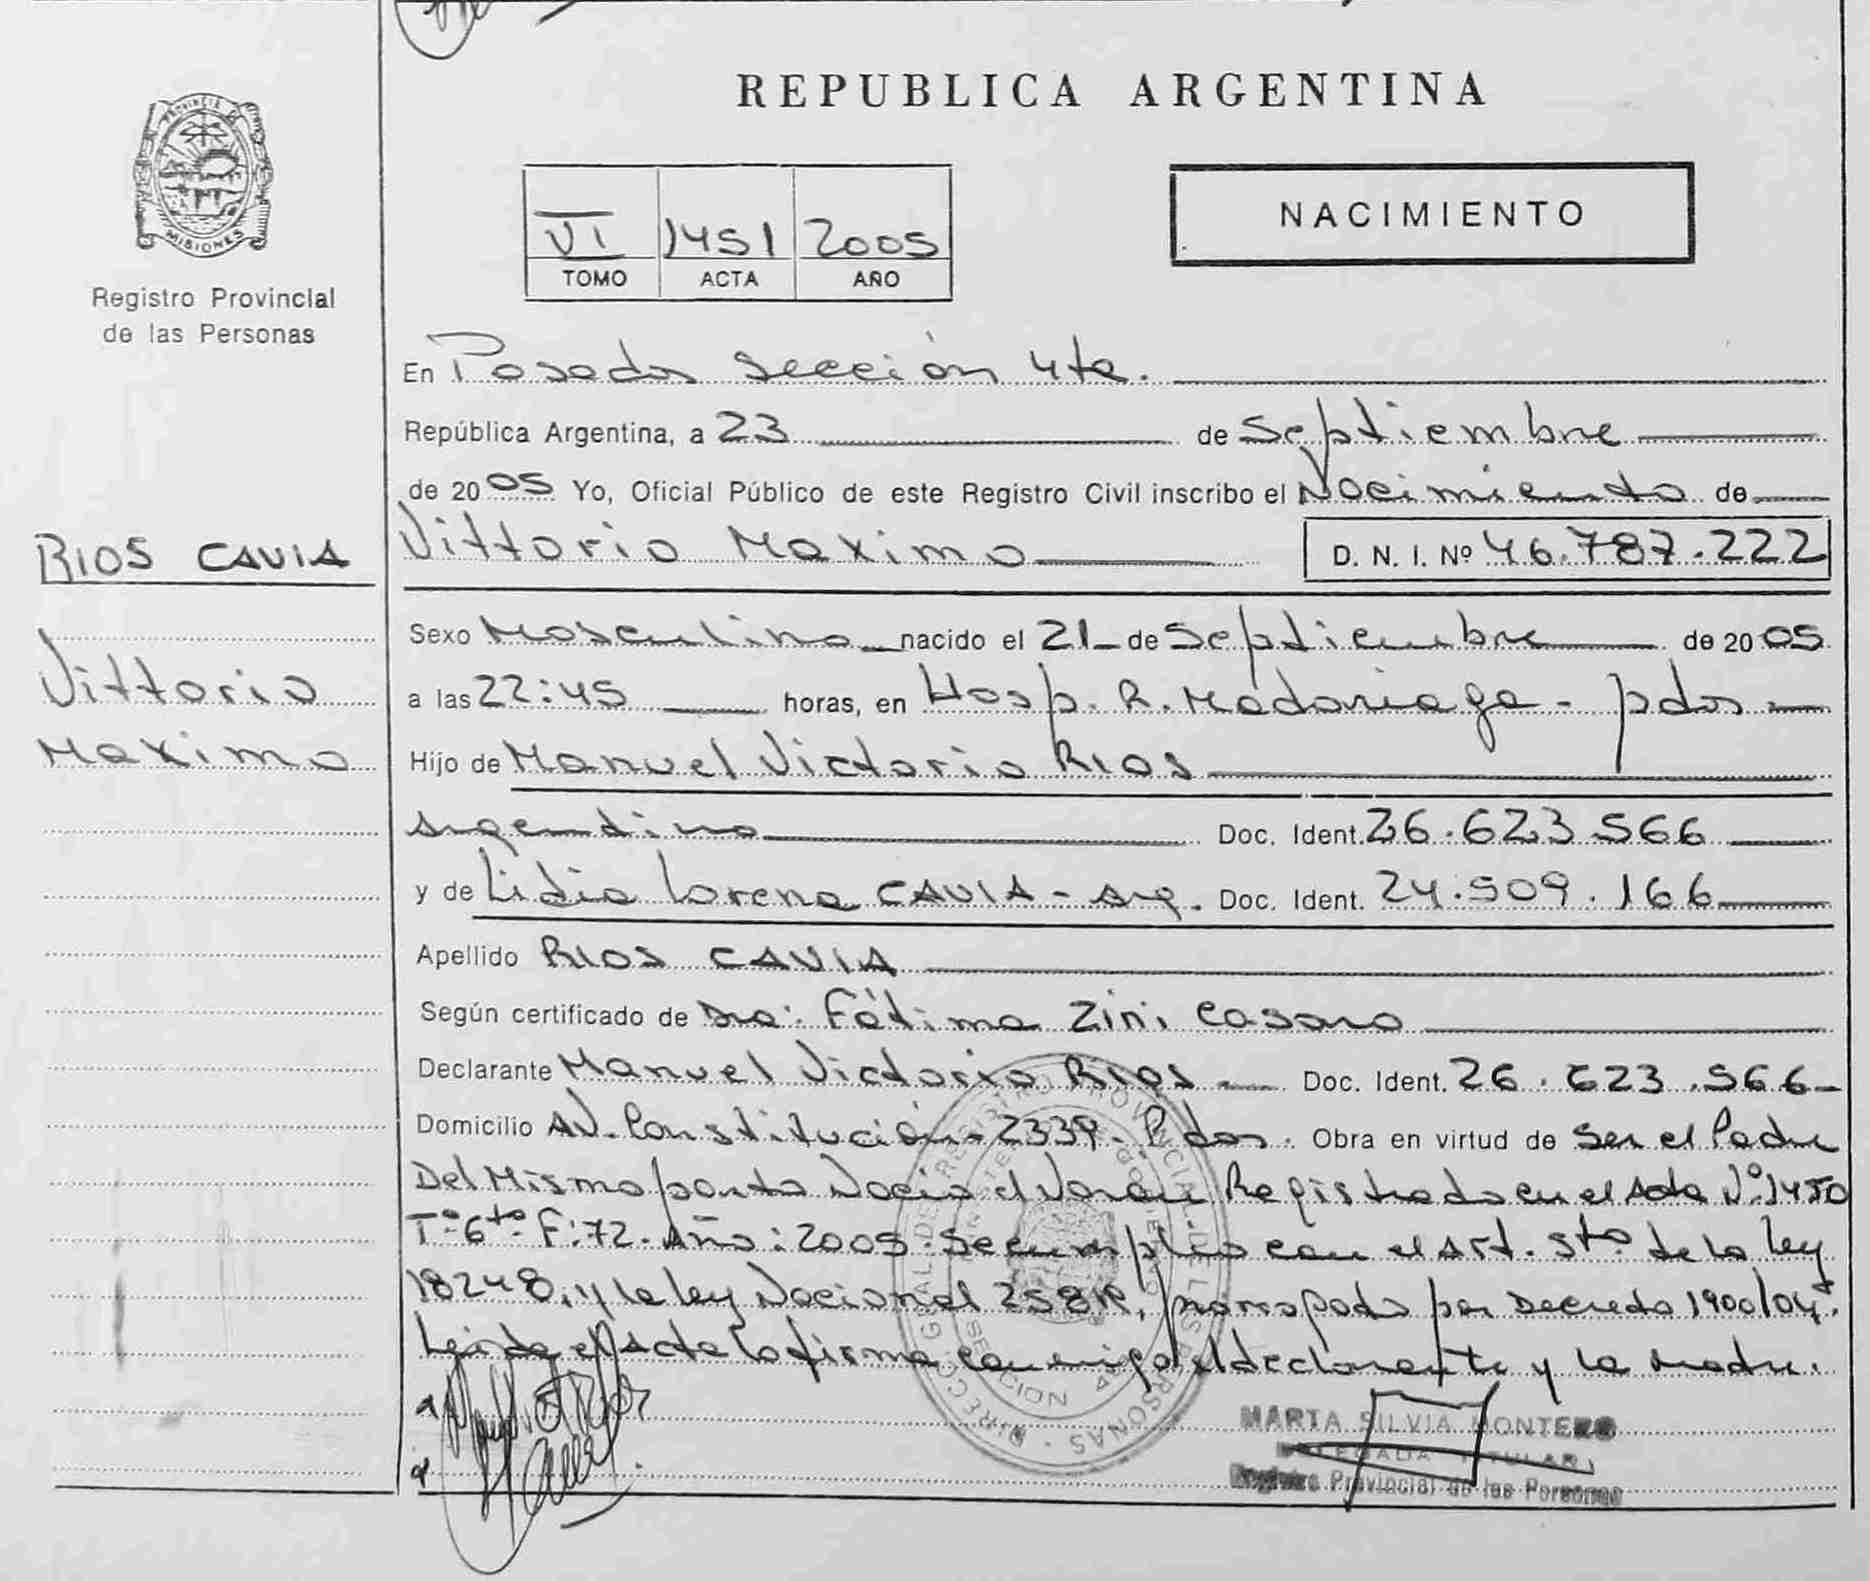 REPUBLICA ARGENTINA
PROVINCIA DE
MISIONES
Registro Provincial
de las Personas
NACIMIENTO
VI 1451 2005
TOMO ACTA AÑO
En Posadas Sección 4ta.
República Argentina, a 23 de Septiembre
de 2005 Yo, Oficial Público de este Registro Civil inscribo el Nacimiento de
RIOS CAVIA
Vittorio Maximo
Vittorio Maximo D. N. I. Nº 46.787.222
Sexo Masculino nacido el 21 de Septiembre de 2005
a las 22:45 horas, en Hosp. R. Madariaga - pdas
Hijo de Manuel Victorio RIOS
argentino Doc. Ident. 26.623.566
y de Lidia Lorena CAVIA - arg. Doc. Ident. 24.509.166
Apellido RIOS CAVIA
Según certificado de Dra: Fátima Zini Casaro
Declarante Manuel Victorio RIOS Doc. Ident. 26.623.566
Domicilio AV. Constitución 2339 - Pdas. Obra en virtud de Ser el Padre
Del Mismo parto Nació el Varón Registrado en el Acta Nº 1450
Tº 6to F:72. Año: 2005. Se cumplió con el Art. 5to de la Ley
18248, y la ley Nacional por Decreto 1900/04.
Leida el Acta la firma conmigo el declarante y la madre.
MARTA SILVIA MONTERO
DELEGADA TITULAR
Registro Provincial de las Personas
DIRECCION GRAL. DE REGISTRO PROVINCIAL DE LAS PERSONAS
SECCION 4ta